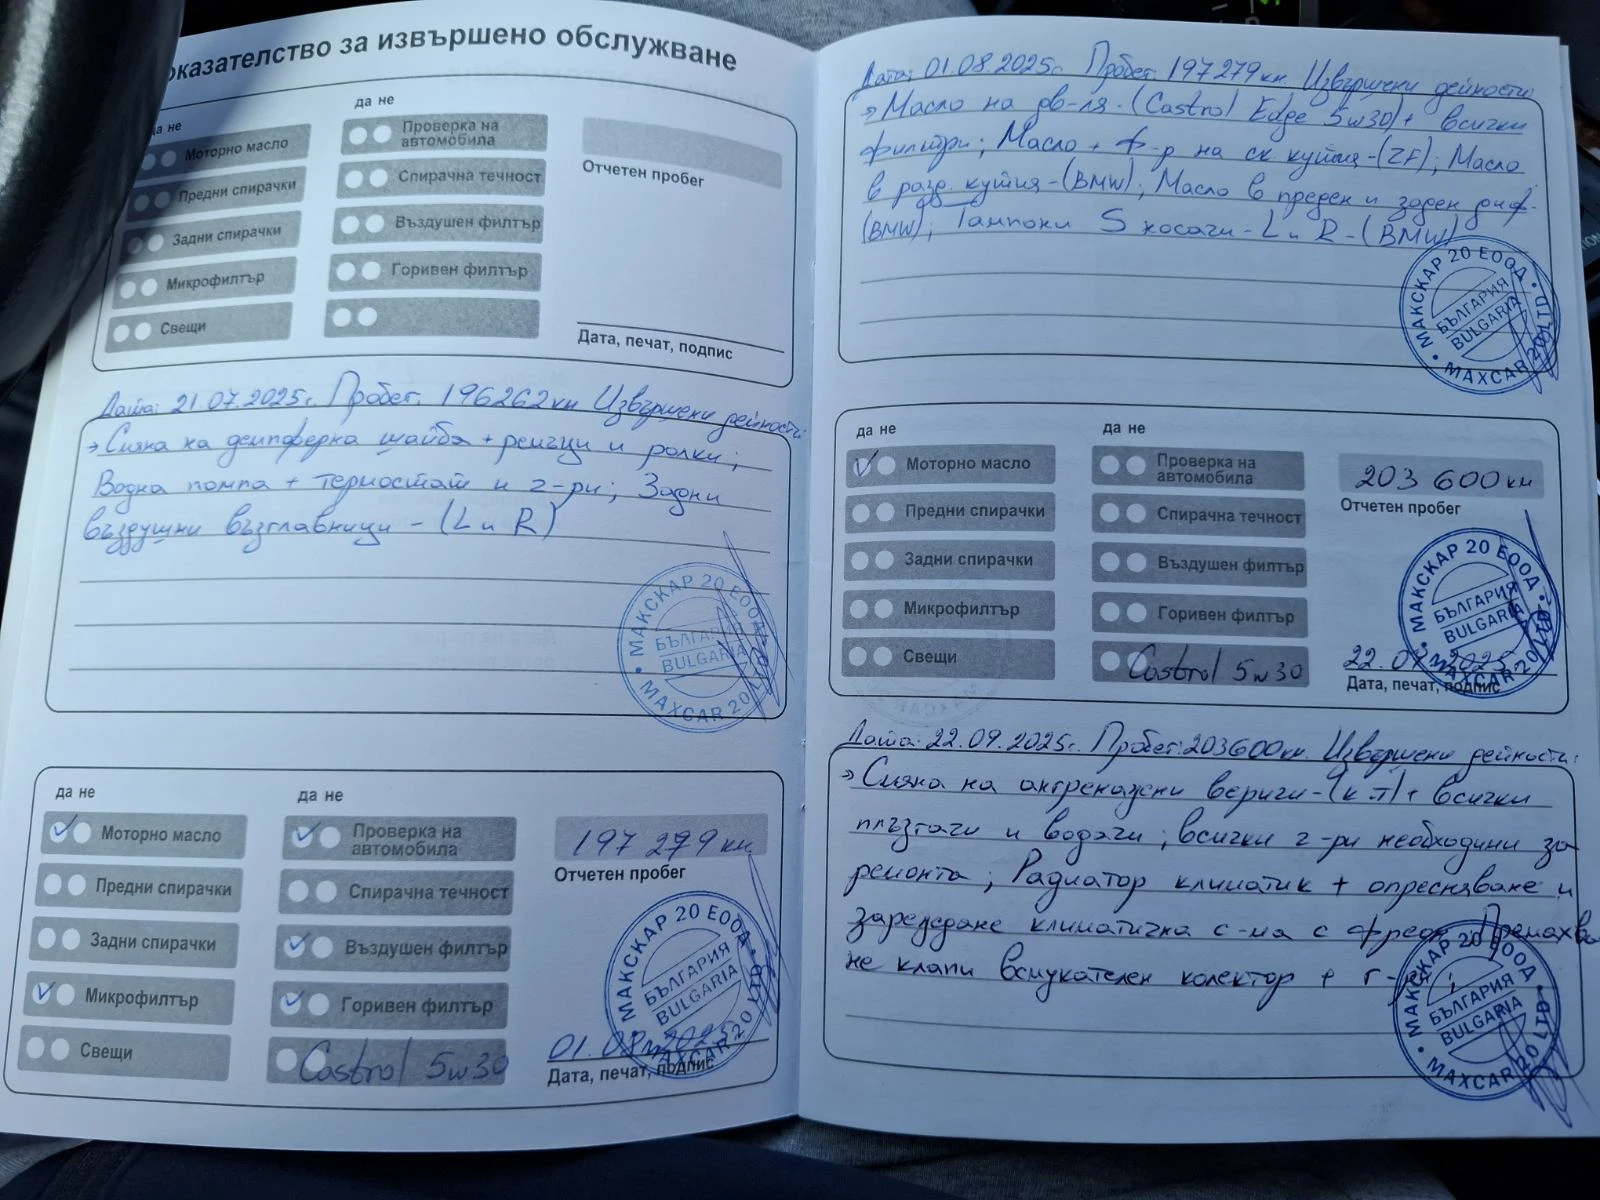 оказателство за извършено обслужване
да не
да не
Моторно масло
Предни спирачки
Задни спирачки
Микрофилтър
Свещи
Проверка на
автомобила
Спирачна течност
Въздушен филтър
Горивен филтър
Отчетен пробег
Дата, печат, подпис
Дата: 21.07.2025г. Пробег: 196262км Извършени дейности:
→ Смяна на демпферна шайба + ремъци и ролки;
Водна помпа + термостат и г-ри; Задни
въздушни възглавници - (L и R)
МАКСКАР 20 ЕООД
БЪЛГАРИЯ
BULGARIA
MAXCAR 20 LTD
да не
да не
Моторно масло
Предни спирачки
Задни спирачки
Микрофилтър
Свещи
Проверка на
автомобила
Спирачна течност
Въздушен филтър
Горивен филтър
Castrol 5w30
197 279 км
Отчетен пробег
МАКСКАР 20 ЕООД
БЪЛГАРИЯ
BULGARIA
MAXCAR 20 LTD
01.08.2025
Дата, печат, подпис
Дата: 01.08.2025г. Пробег: 197279км. Извършени дейности:
→ Масло на дв-ля - (Castrol Edge 5w30) + всички
филтри; Масло + ф-р на ск. кутия - (ZF); Масло
в разд. кутия - (BMW); Масло в преден и заден диф.
(BMW); Тампони S носачи - L и R - (BMW)
МАКСКАР 20 ЕООД
БЪЛГАРИЯ
BULGARIA
MAXCAR 20 LTD
да не
да не
Моторно масло
Предни спирачки
Задни спирачки
Микрофилтър
Свещи
Проверка на
автомобила
Спирачна течност
Въздушен филтър
Горивен филтър
Castrol 5w30
203 600 км
Отчетен пробег
МАКСКАР 20 ЕООД
БЪЛГАРИЯ
BULGARIA
MAXCAR 20 LTD
22.09.2025
Дата, печат, подпис
Дата: 22.09.2025г. Пробег: 203600км. Извършени дейности:
→ Смяна на ангренажни вериги - (к-т) + всички
плъзгачи и водачи; всички г-ри необходими за
ремонта; Радиатор климатик + опресняване и
зареждане климатична с-ма с фреон; Премахва
не клапи всмукателен колектор + г-ри;
МАКСКАР 20 ЕООД
БЪЛГАРИЯ
BULGARIA
MAXCAR 20 LTD